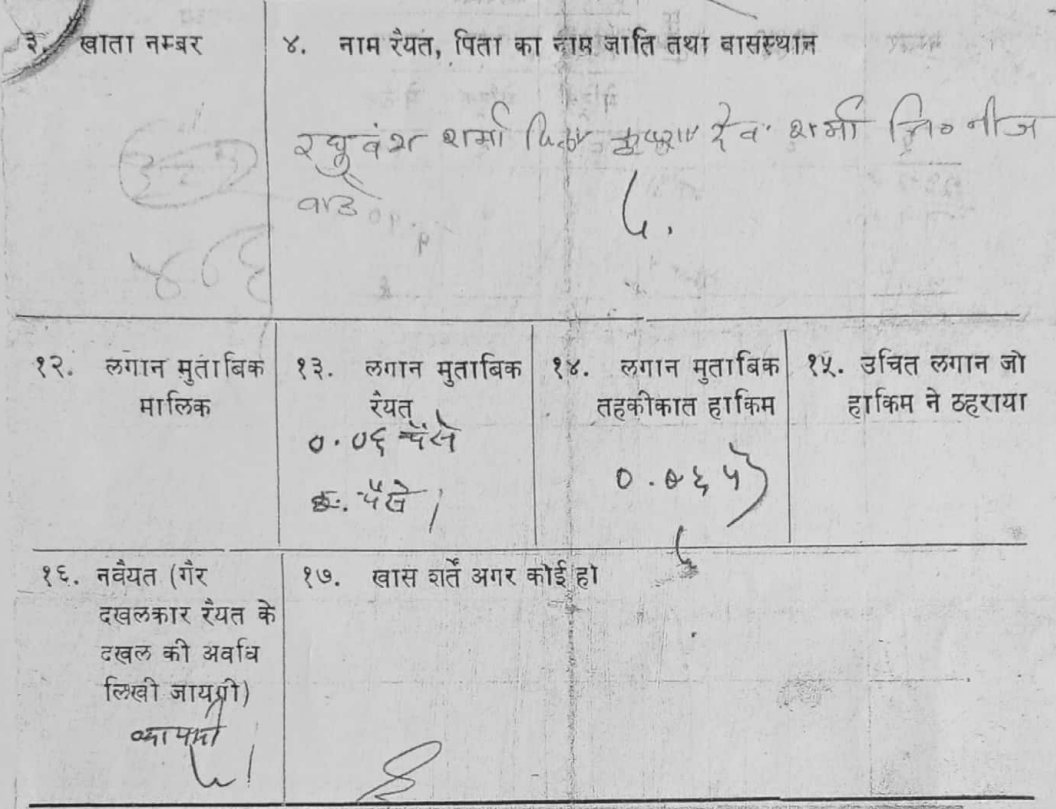 ३. खाता नम्बर
४. नाम रैयत, पिता का नाम जाति तथा वासस्थान
रघुवंश शर्मा पिता देव शर्मा नि० नीज
वार्ड
१२. लगान मुताबिक
मालिक
१३. लगान मुताबिक
रैयत
०.०६ पैसे
छः पैसे
१४. लगान मुताबिक
तहकीकात हाकिम
१५. उचित लगान जो
हाकिम ने ठहराया
१६. नवैयत (गैर
दखलकार रैयत के
दखल की अवधि
लिखी जायगी)
कायमी
१७. खास शर्तें अगर कोई हो